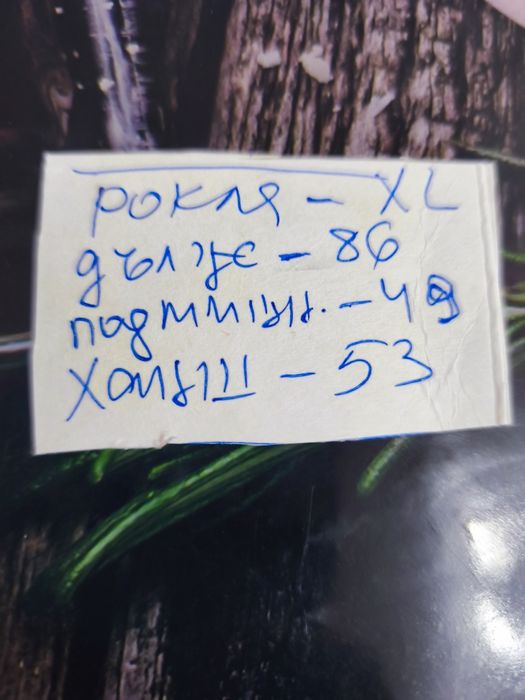 рокля - XL
дълже - 86
подмишн. - 49
Ханъш - 53